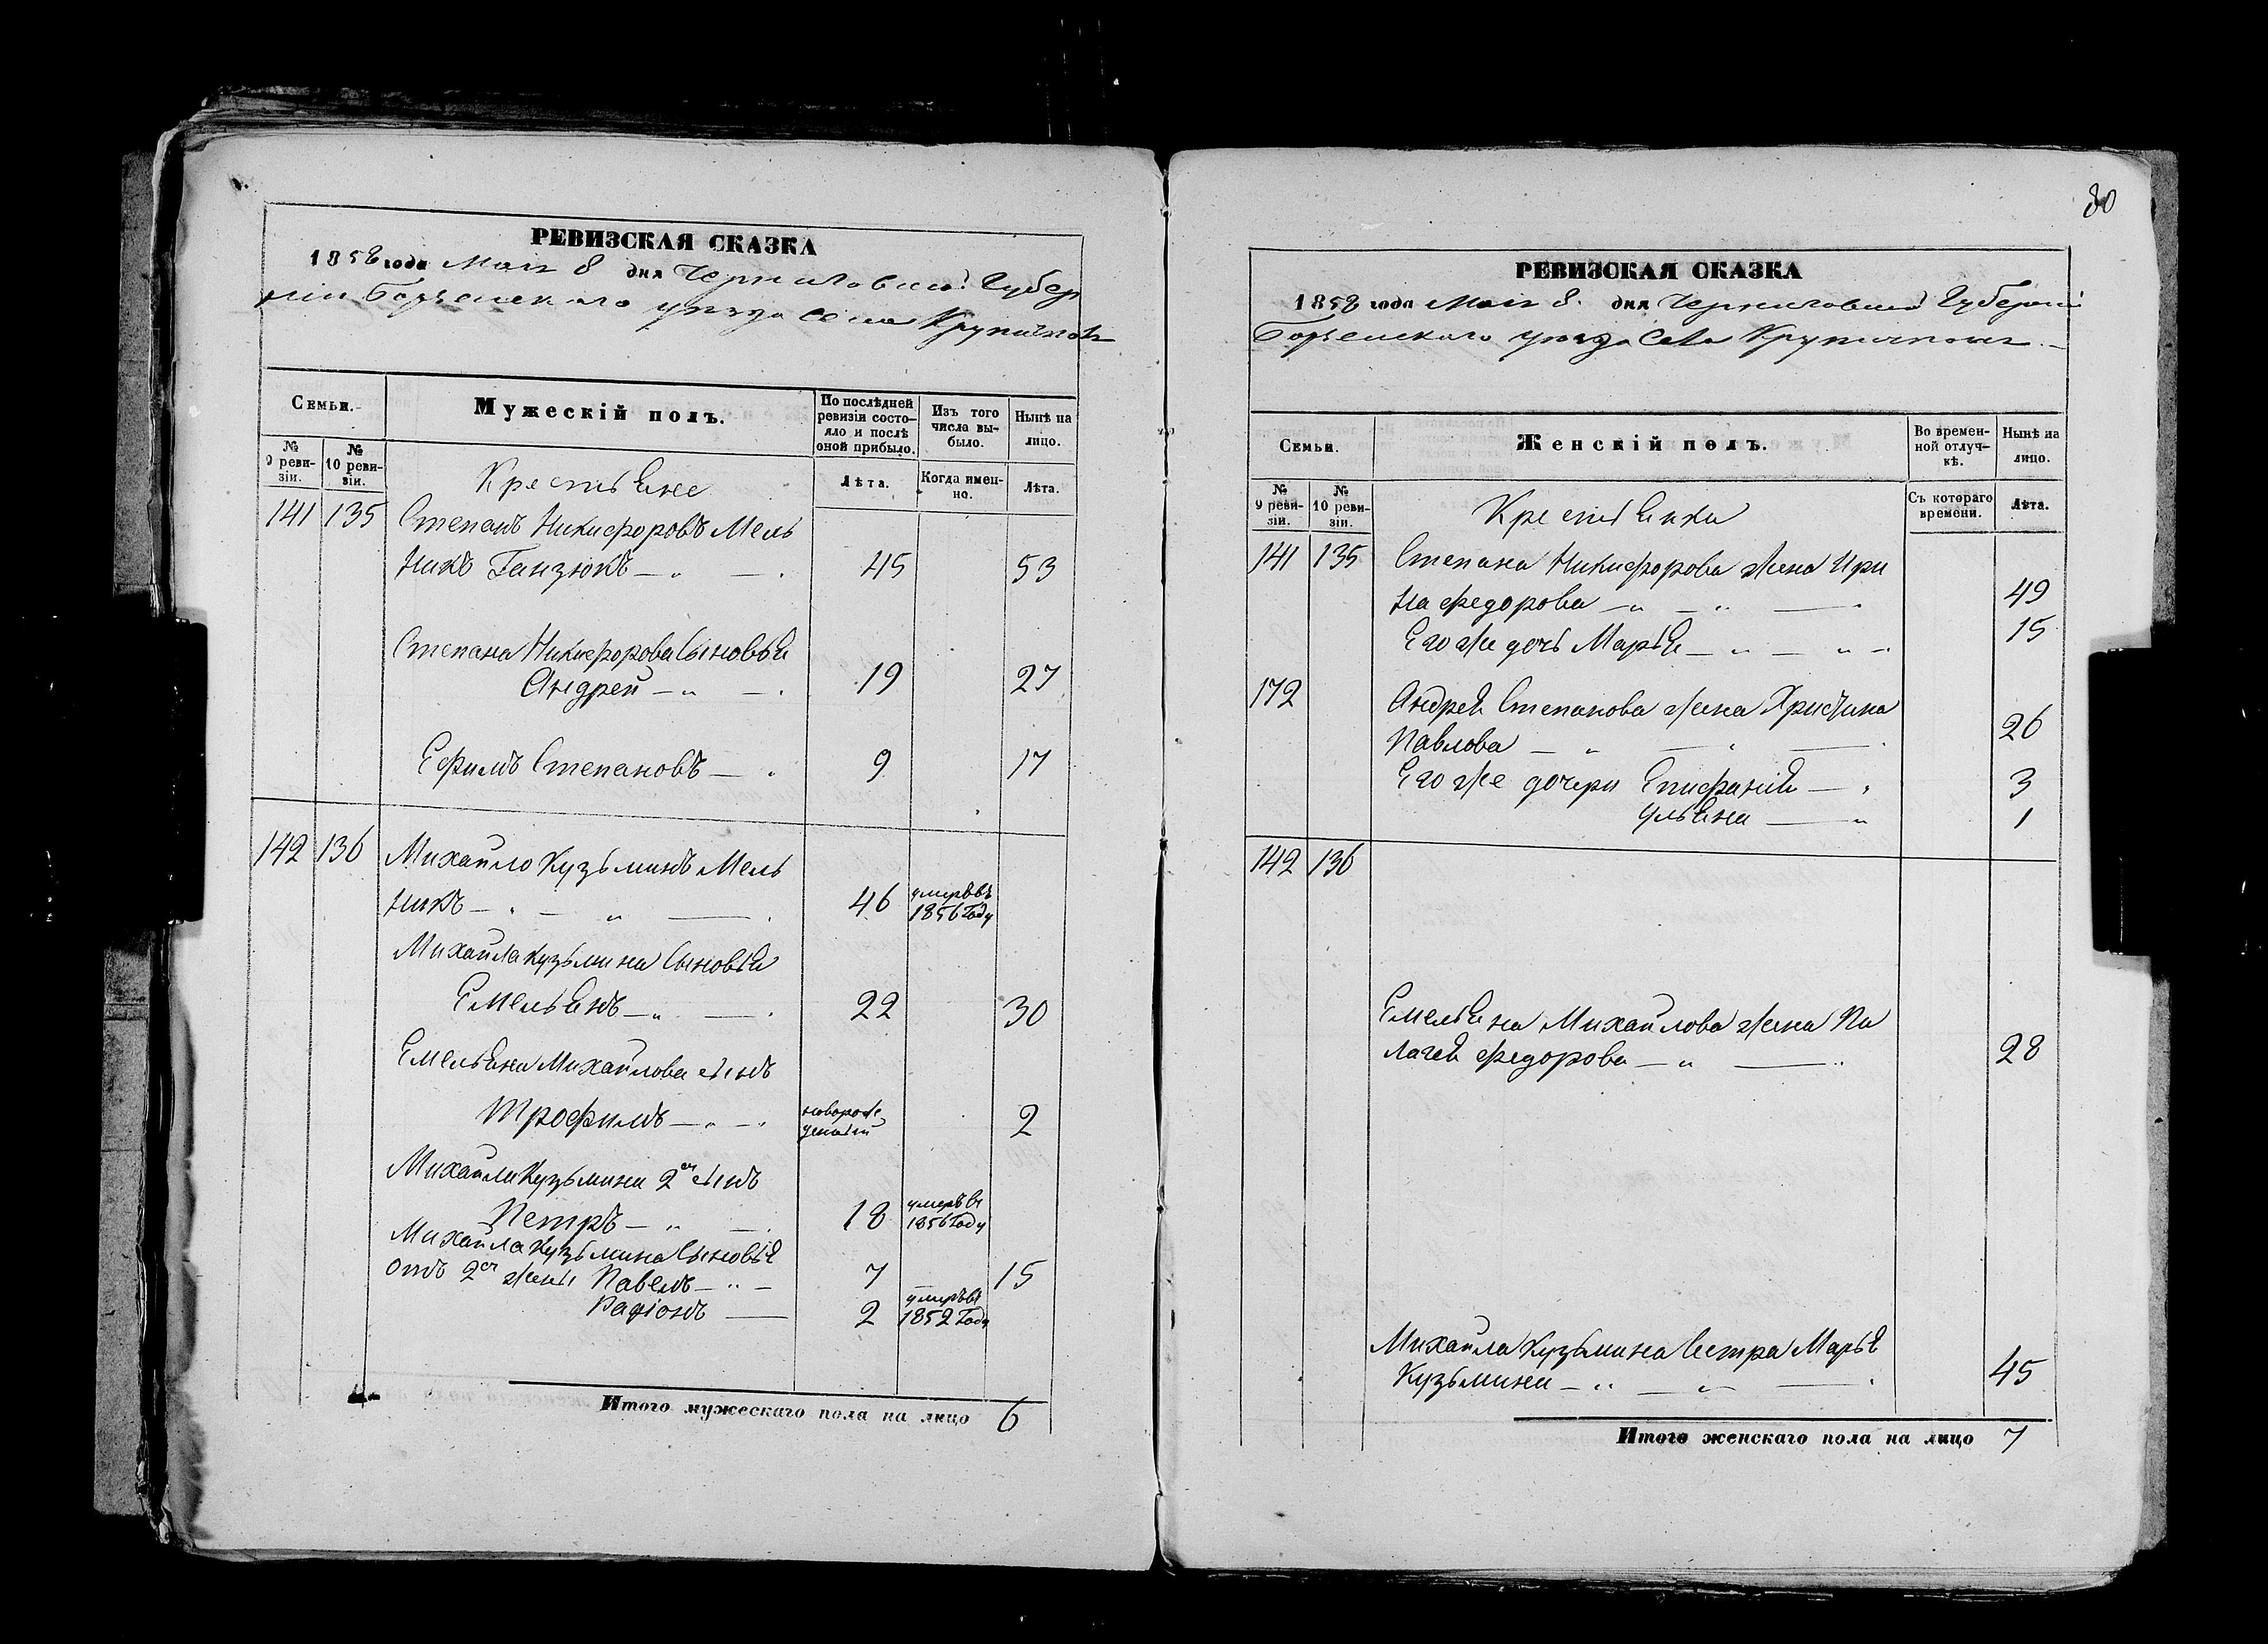 РЕВИЗСКАЯ СКАЗКА
1858 года Мая 8 дня Черниговской Губер
ніи Борзенскаго уезда села Крупичполя
Семьи.
Мужескій полъ.
По послѣдней ревизіи состояло и послѣ оной прибыло.
Изъ того числа выбыло.
Нынѣ на лицо.
№ 9 ревизіи.
№ 10 ревизіи.
Крестьяне
Лѣта.
Когда именно.
Лѣта.
141 135 Степанъ Никифоровъ Мель
никъ Ганзюкъ — 45 53
Степана Никифорова сыновья
Андрей — 19 27
Ефимъ Степановъ — 9 17
142 136 Михайло Кузьминъ Мель
никъ — 46 умеръ въ 1856 году
Михайла Кузьмина сыновья
Емельянъ — 22 30
Емельяна Михайлова сынъ
Трофимъ — новорожденный 2
Михайла Кузьмина 2й сынъ
Петръ — 18 умеръ въ 1856 году
Михайла Кузьмина сыновья
отъ 2й жены Павелъ — 7 — 15
Радіонъ — 2 умеръ въ 1852 году
Итого мужескаго пола на лицо 6
80
РЕВИЗСКАЯ СКАЗКА
1858 года Мая 8 дня Черниговской Губерніи
Борзенскаго уезда села Крупичполя
Семьи.
Женскій полъ.
Во временной отлучкѣ.
Нынѣ на лицо.
№ 9 ревизіи.
№ 10 ревизіи.
Крестьянки
Съ котораго времени.
Лѣта.
141 135 Степана Никифорова жена Ири
на Федорова — 49
Его же дочь Марья — 15
172 Андрея Степанова жена Христина
Павлова — 26
Его же дочери Епифанія — 3
Ульяна — 1
142 136
Емельяна Михайлова жена Па
лагея Федорова — 28
Михайла Кузьмина сестра Марья
Кузьмина — 45
Итого женскаго пола на лицо 7